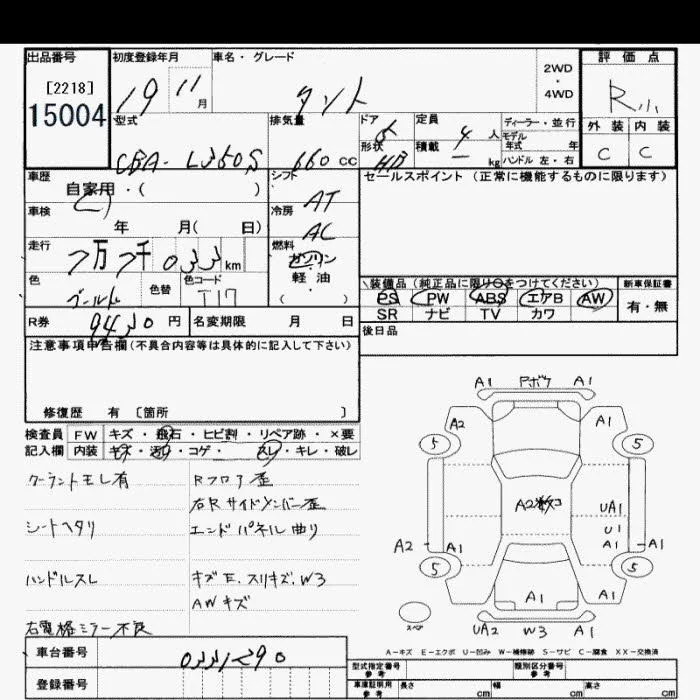 出品番号 初度登録年月 車名・グレード 2WD・4WD 評価点
[2218] 19 11月 タント R小
15004 型式 排気量 ドア 5 定員 4人 ディーラー・並行 外装 内装
CBA-L350S 660cc 形状 HB 積載 ー kg モデル年式 年 ハンドル 左・右 C C
車歴 自家用・( ) シフト AT セールスポイント(正常に機能するものに限ります)
車検 年 月( 日) 冷房 AC
走行 7万7千033km 燃料 ガソリン 軽・油 ( )
色 ゴールド 色替 色コード T17
装備品(純正品に限り○をつけてください) 新車保証書
PS PW ABS エアB AW 有・無
SR ナビ TV カワ
R券 9430円 名変期限 月 日 後日品
注意事項申告欄(不具合内容等は具体的に記入して下さい)
修復歴 有 〔箇所 〕
検査員 FW キズ・飛石・ヒビ割・リペア跡・×要
記入欄 内装 キズ・汚れ・コゲ・スレ・キレ・破レ
クーラントモレ有 Rフロア歪
右Rサイドメンバー歪
シートヘタリ エンドパネル曲り
ハンドルスレ キズE、スリキズ、W3
AWキズ
右電格ミラー不良
A1 Pボケ A1
A2 A1
5 5
A2
UA1
U1
A2 A1 A1 A1
5 5
A1 A1
スペア UA2 W3 A1
A-キズ E-エクボ U-凹み W-補修跡 S-サビ C-腐食 XX-交換済
車台番号
登録番号
型式指定番号 参考 類別区分番号 参考
車庫証明用 参考 長さ cm 幅 cm 高さ cm